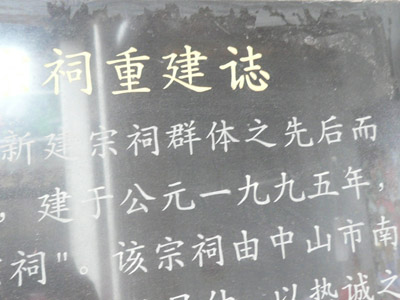 祠重建誌
新建宗祠群体之先后而
，建于公元一九九五年，
祠"。该宗祠由中山市南
以热诚之